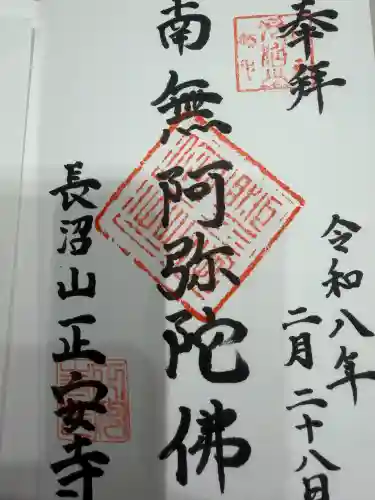 奉拝
令和八年
二月二十八日
南無阿弥陀佛
長沼山正安寺